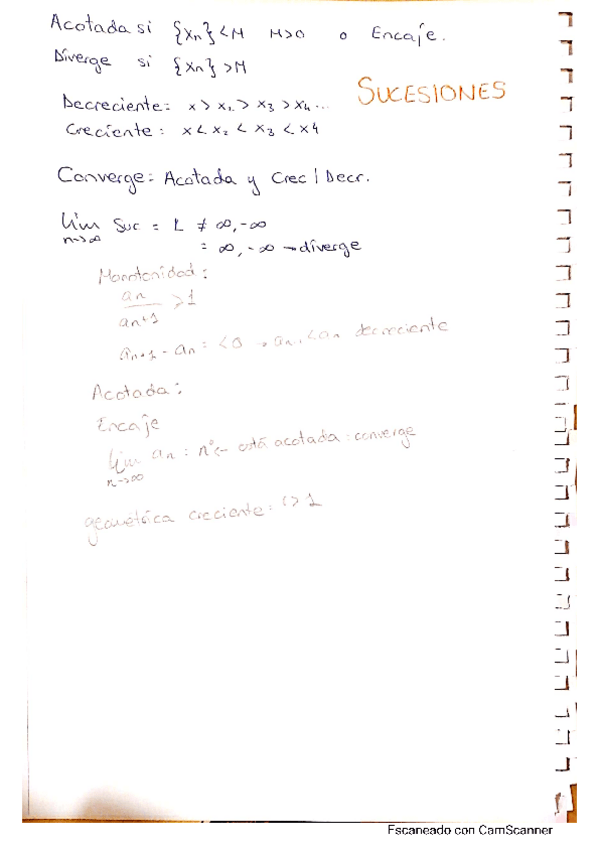 Acotada si {xn} < M M>0 o Encaje.
Diverge si {xn} > M
SUCESIONES
Decreciente: x > x2 > x3 > x4 ...
Creciente: x < x2 < x3 < x4
Converge: Acotada y Crec / Decr.
lim Suc = L ≠ ∞, -∞
n→∞
= ∞, -∞ → diverge
Monotonidad:
an
> 1
an+1
an+1 - an = < 0 → an+1 < an decreciente
Acotada:
Encaje
lim an : nº ← está acotada : converge
n→∞
geométrica creciente: r > 1
Escaneado con CamScanner